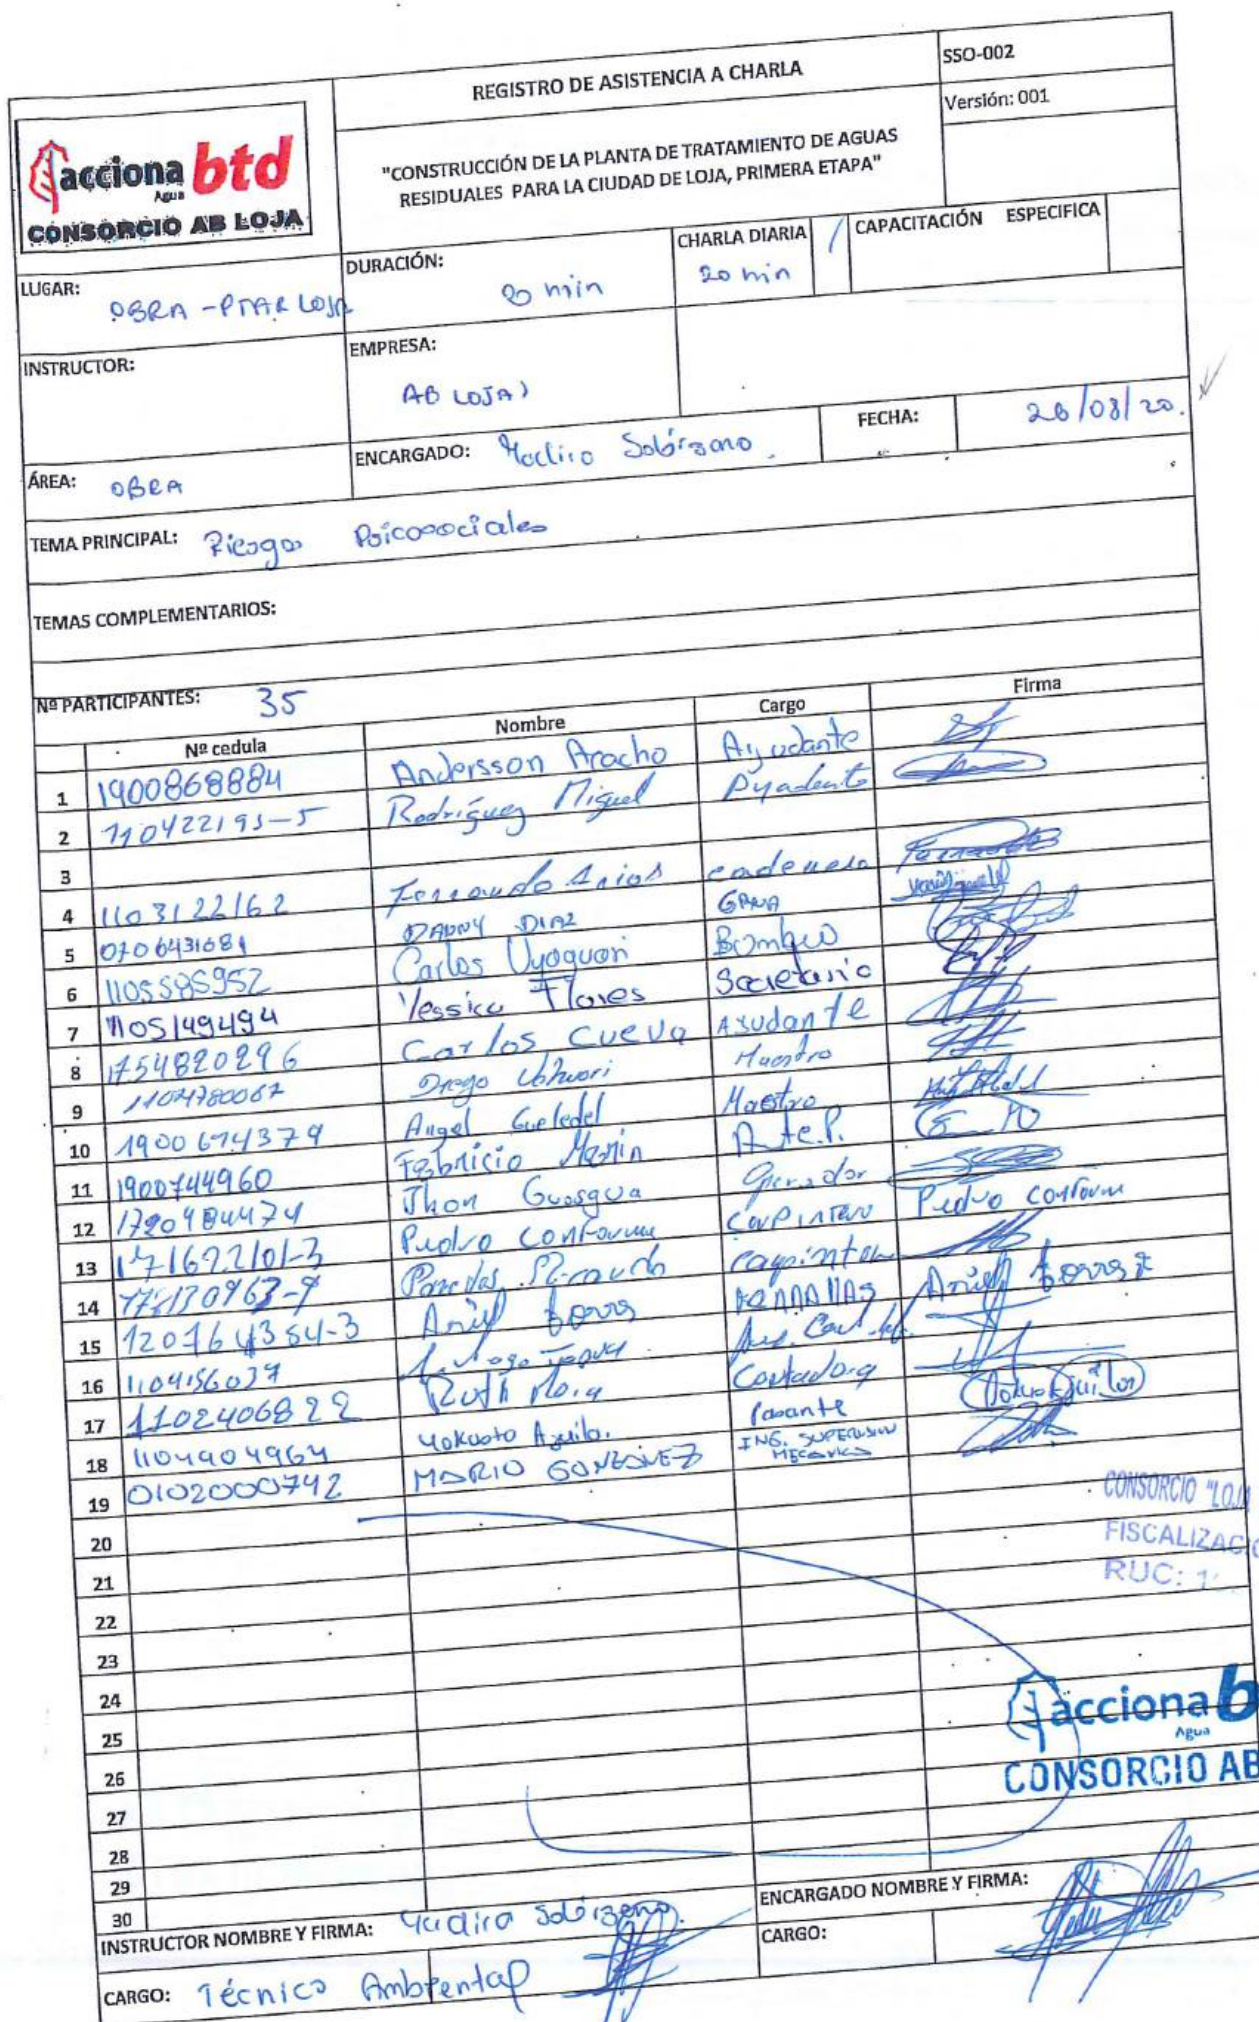 REGISTRO DE ASISTENCIA A CHARLA
SSO-002
Versión: 001
acciona btd
Agua
CONSORCIO AB LOJA
"CONSTRUCCIÓN DE LA PLANTA DE TRATAMIENTO DE AGUAS
RESIDUALES PARA LA CIUDAD DE LOJA, PRIMERA ETAPA"
LUGAR: OBRA - PTAR LOJA
DURACIÓN: 20 min
CHARLA DIARIA 20 min /
CAPACITACIÓN ESPECIFICA
INSTRUCTOR:
EMPRESA: AB LOJA
ÁREA: OBRA
ENCARGADO:
FECHA: 26/08/20.
TEMA PRINCIPAL: Riesgos Psicosociales
TEMAS COMPLEMENTARIOS:
Nº PARTICIPANTES: 35
Nº cedula Nombre Cargo Firma
1 1900868884 Andersson Aracho Ayudante
2 110422193-5 Rodríguez Miguel
3
4 1103122162 Fernando Arios cadenero
5 0706431681 DANNY DIAZ
6 1105585952 Carlos Bombeo
7 1105149494 Yessica Flores Secretaria
8 1754820296 Carlos Cueva Ayudante
9 1104780067 Diego Maestro
10 1900674379 Angel Maestro
11 1900744960 Fabricio Marin
12 1720484474 Jhon Guasgua Operador
13 171622101-3 Pedro Conforme Carpintero Pedro Conforme
14 Paredes
15 120164354-3
16 1104156037
17 1102406822 Ruth Mora Contadora
18 1104904964 Yokasta Aguila. Pasante
19 0102000742 MARIO GONZALEZ ING. SUPERVISION MECANICA
20
21
22
23
24
25
26
27
28
29
30
CONSORCIO "LOJA
FISCALIZACIO
RUC: 1
acciona b
Agua
CONSORCIO AB
INSTRUCTOR NOMBRE Y FIRMA: Yadira
ENCARGADO NOMBRE Y FIRMA:
CARGO: Técnico Ambiental
CARGO: